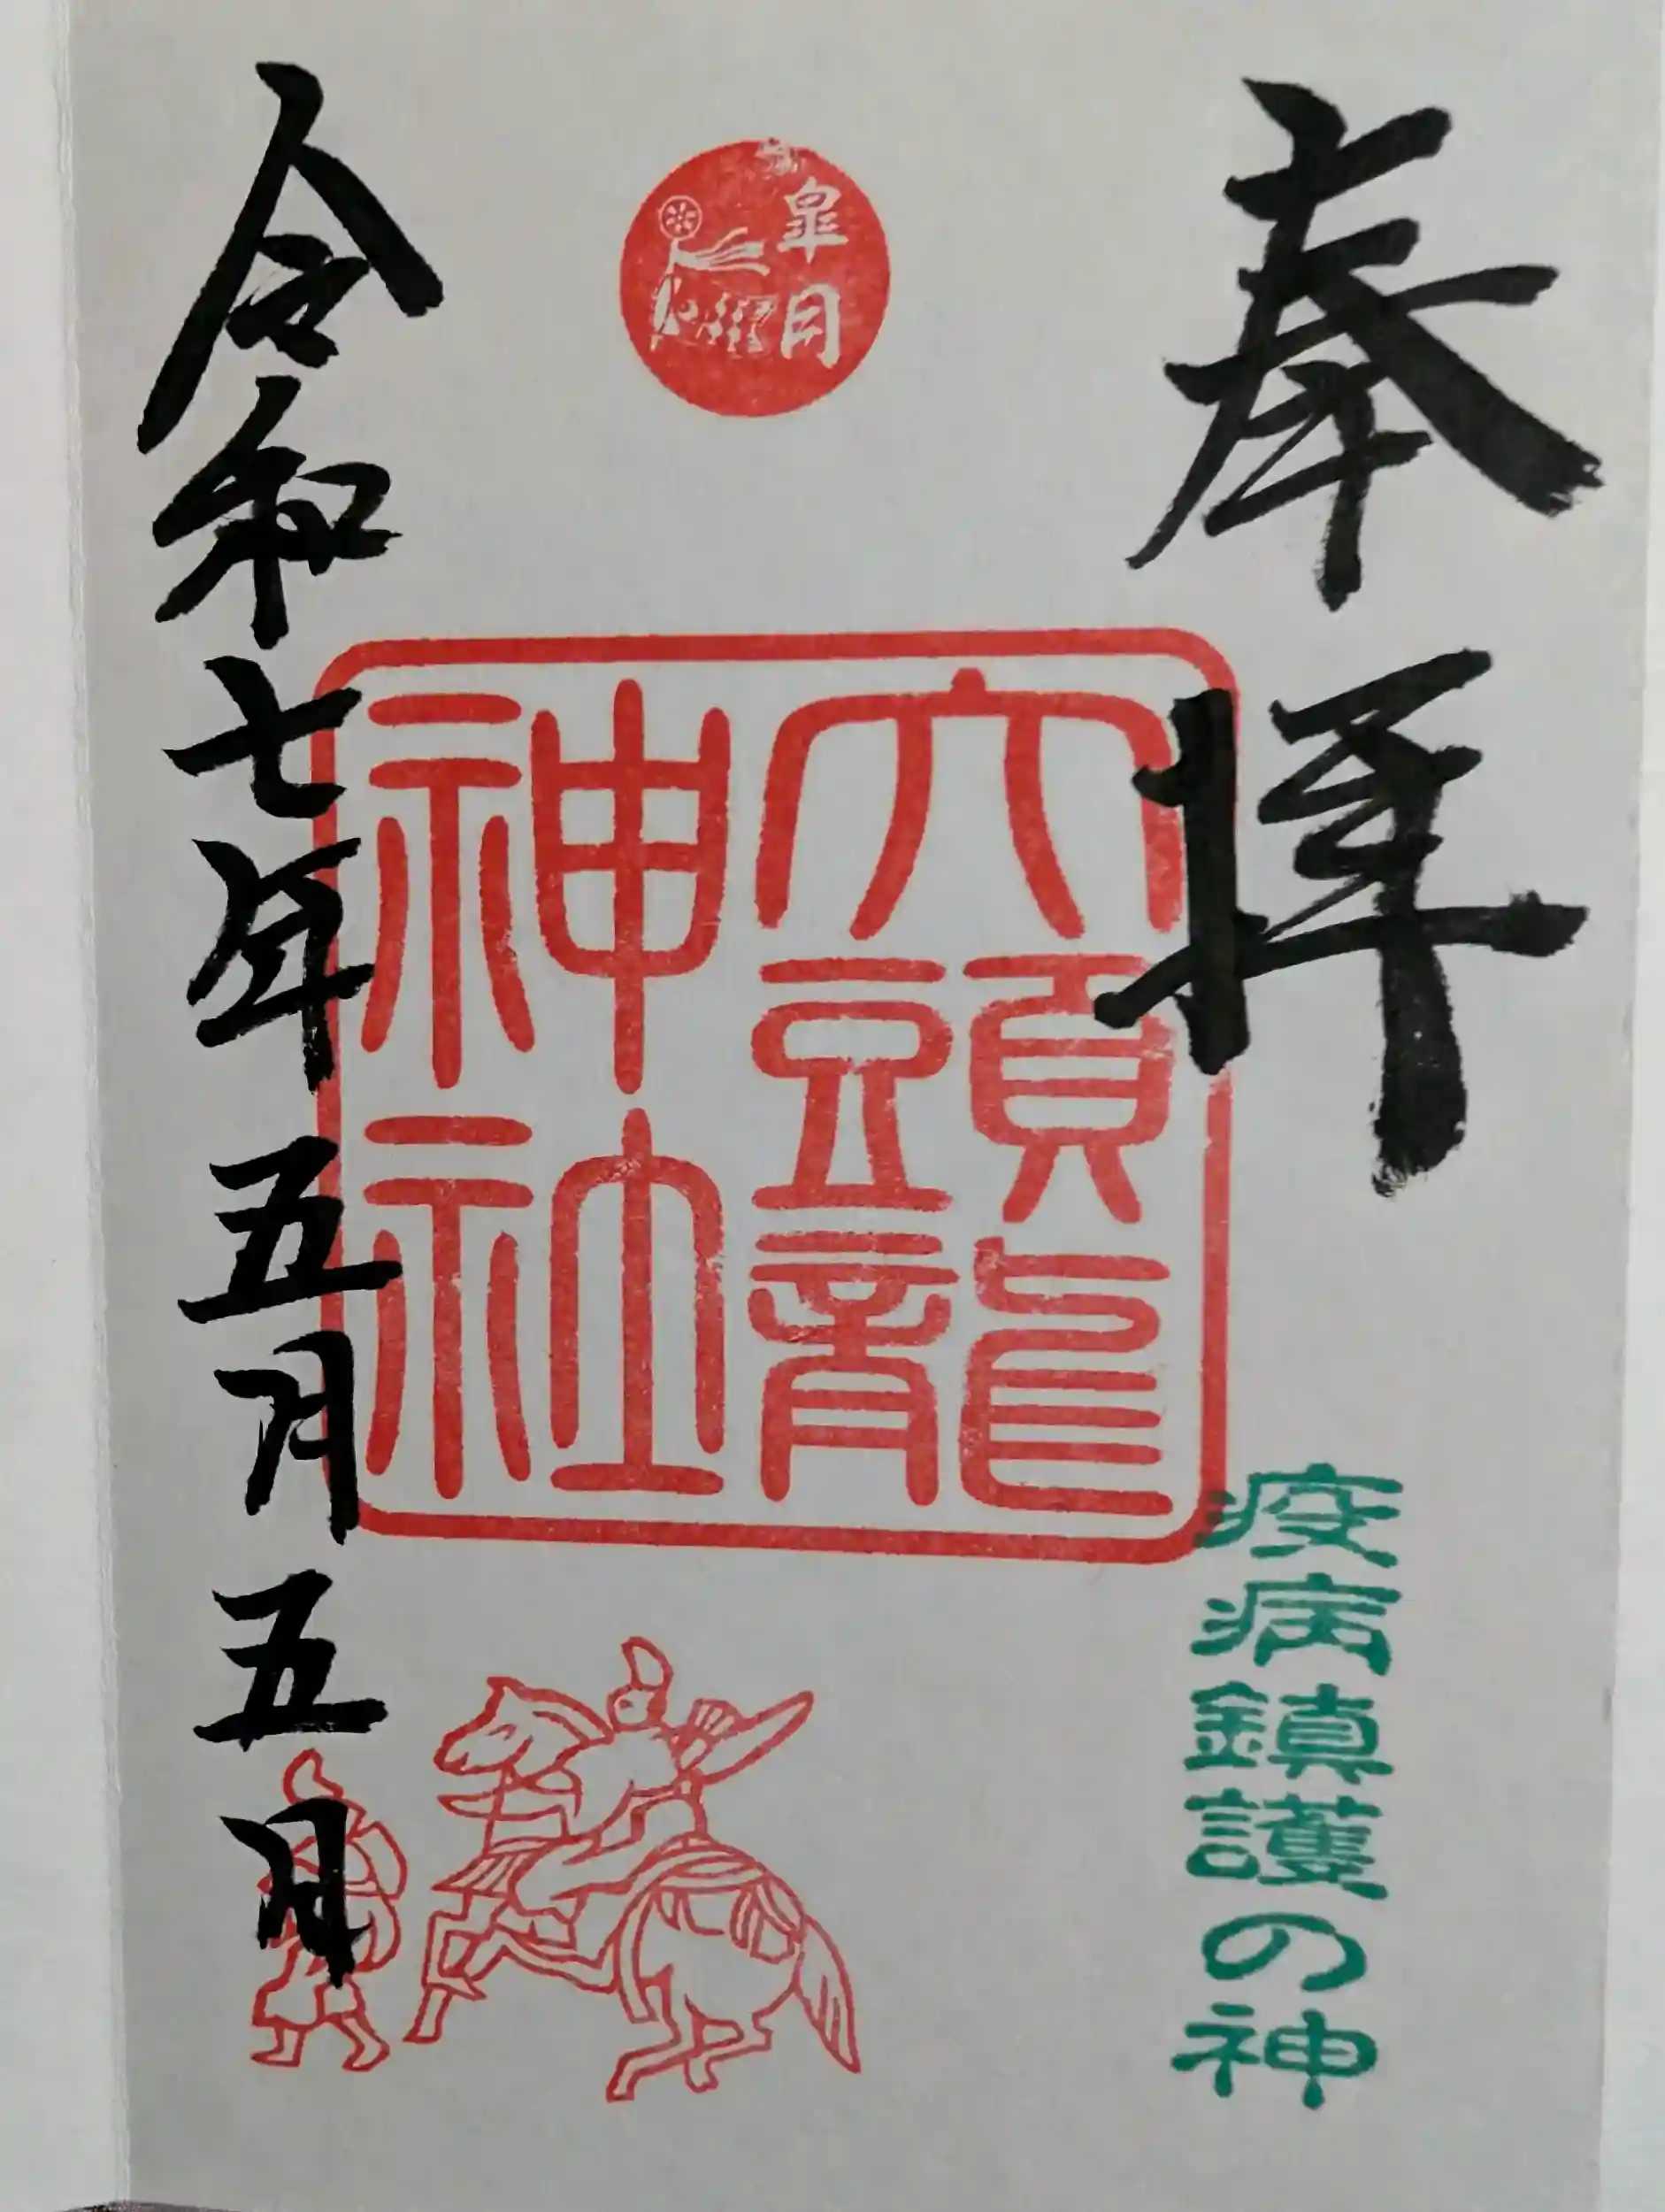 奉拝
皐月
大頭龍
神社
疫病鎮護の神
令和七年五月五日